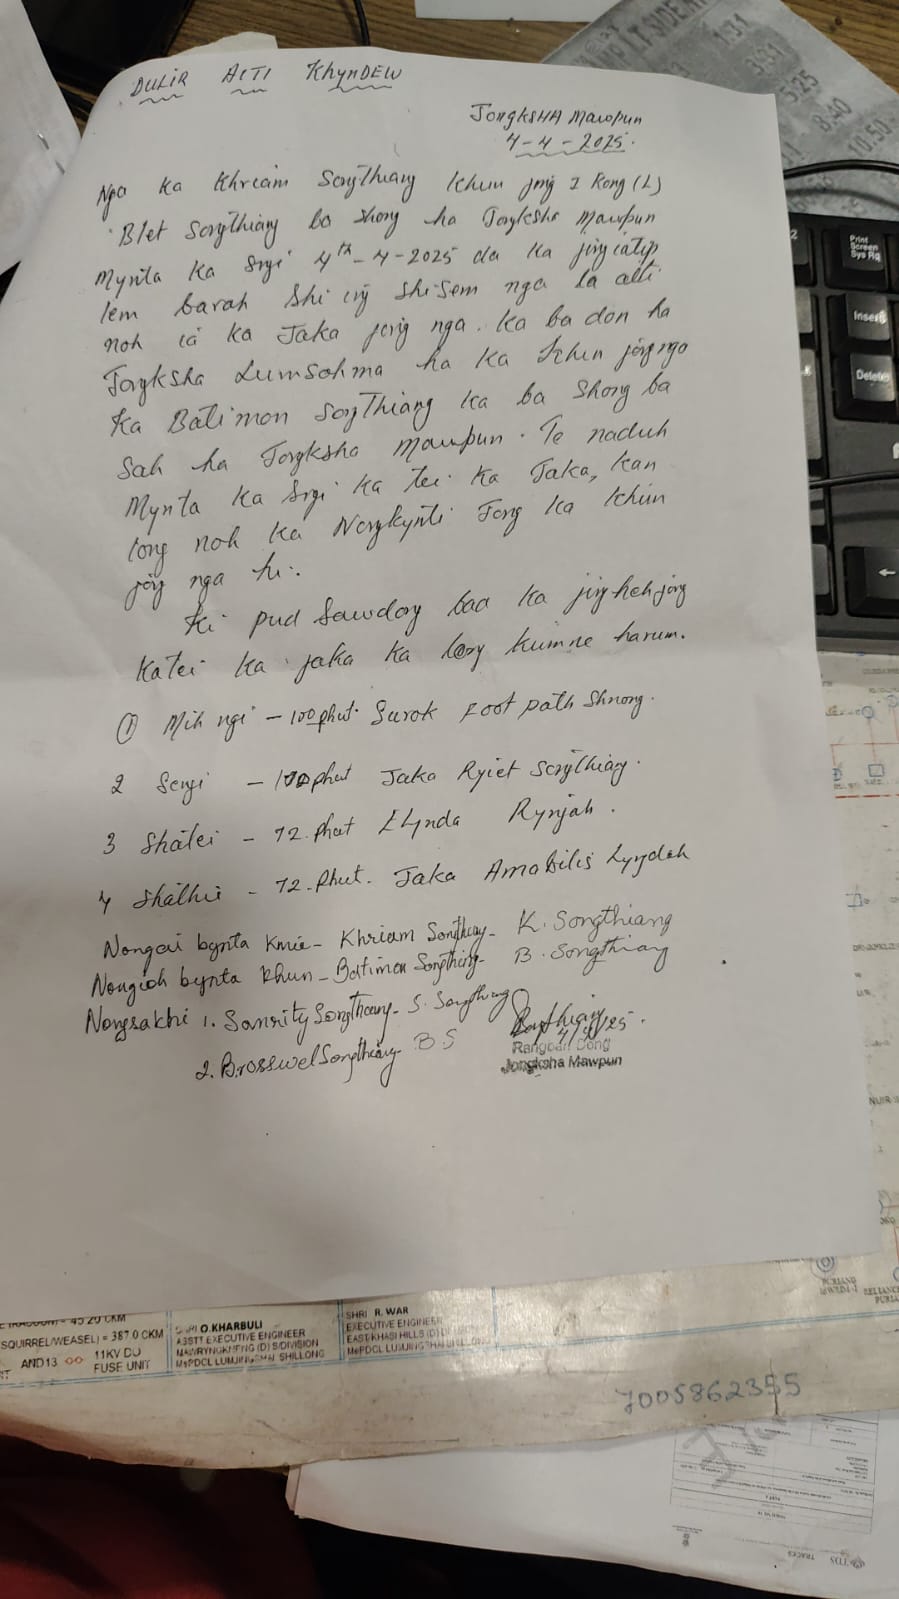 DULIR AITI KhynDEW
JongkSHA Mawpun
4-4-2025.
Nga ka Khriam Songthiang khun jong I Kong (L)
Blet Songthiang ba shong ha Jongksha Mawpun
Mynta ka sngi 4th-4-2025 da ka jingiatip
lem barah shi iing shisem nga la aiti
noh ia ka Jaka jong nga. Ka ba don ha
Jongksha Lumsohma ha ka khun jong nga
Ka Batimon SongThiang ka ba shong ba
sah ha Jongksha Mawpun. Te naduh
Mynta ka sngi ka tei ka Jaka, kan
long noh ka Nongkynti Jong ka khun
jong nga hi.
Ki pud sawdong bad ka jingheh jong
katei ka jaka ka long kumne harum.
① Mih ngi - 100 phut. Surok Foot path Shnong.
2 Sengi - 100 phut Jaka Ryiet Songthiang.
3 Shatei - 72. phut Elynda Rynjah.
4 Shathie - 72. Phut. Jaka Amabilis Lyngdoh
Nongai bynta kmie - Khriam Songthiang - K. Songthiang
Nongioh bynta khun - Batimon Songthiang - B. Songthiang
Nongsakhi 1. Sanrity Songthiang - S. Songthiang
4/4/25.
Rangbah Dong
Jongksha Mawpun
2. Brosswel Songthiang BS
45 20 CKM
SQUIRREL/WEASEL) = 387.0 CKM
AND13 11KV DO
FUSE UNIT
SHRI O.KHARBULI
ASSTT EXECUTIVE ENGINEER
MAWRYNGKNENG (D) S/DIVISION
MePDCL LUMJINGSHAI SHILLONG
SHRI R. WAR
EXECUTIVE ENGINEER
EAST KHASI HILLS (D) DI
MePDCL LUMJINGSHAI SHILLONG
7005862355
Print
Screen
Sys Rq
Insert
Delete
1:31
3:31
5:25
8:40
10:50
TDS
TRACES